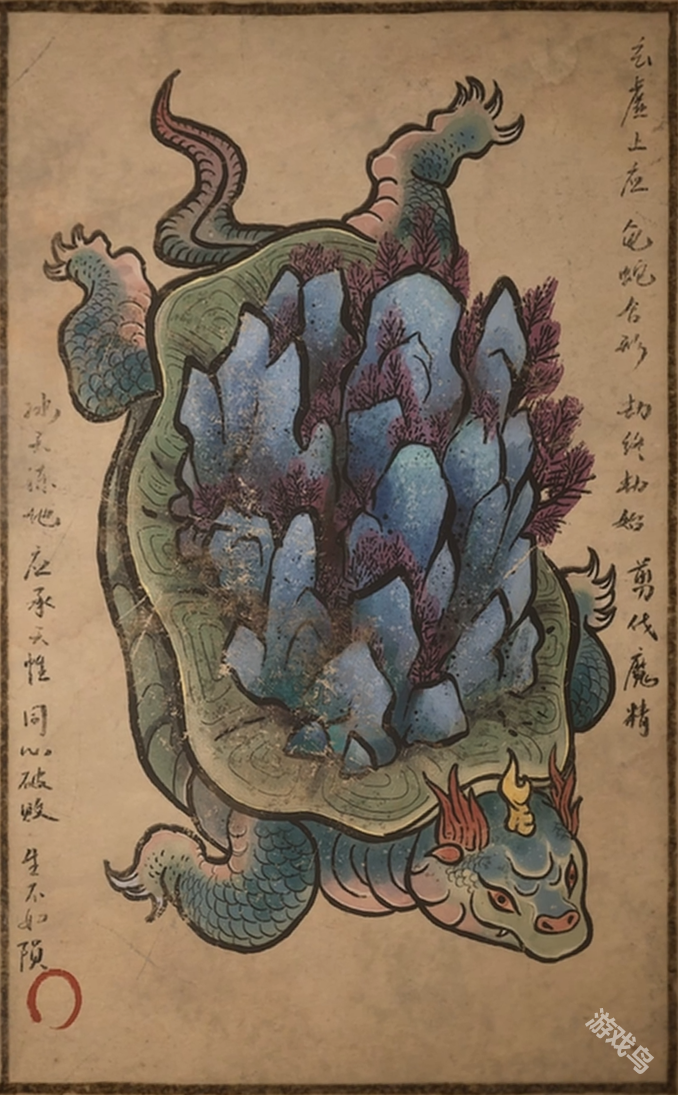 玄虚上应 龟蛇合形 劫终劫始 剪伐魔精
冰天冻地 应承天性 同心破败 生不如陨
游戏鸟